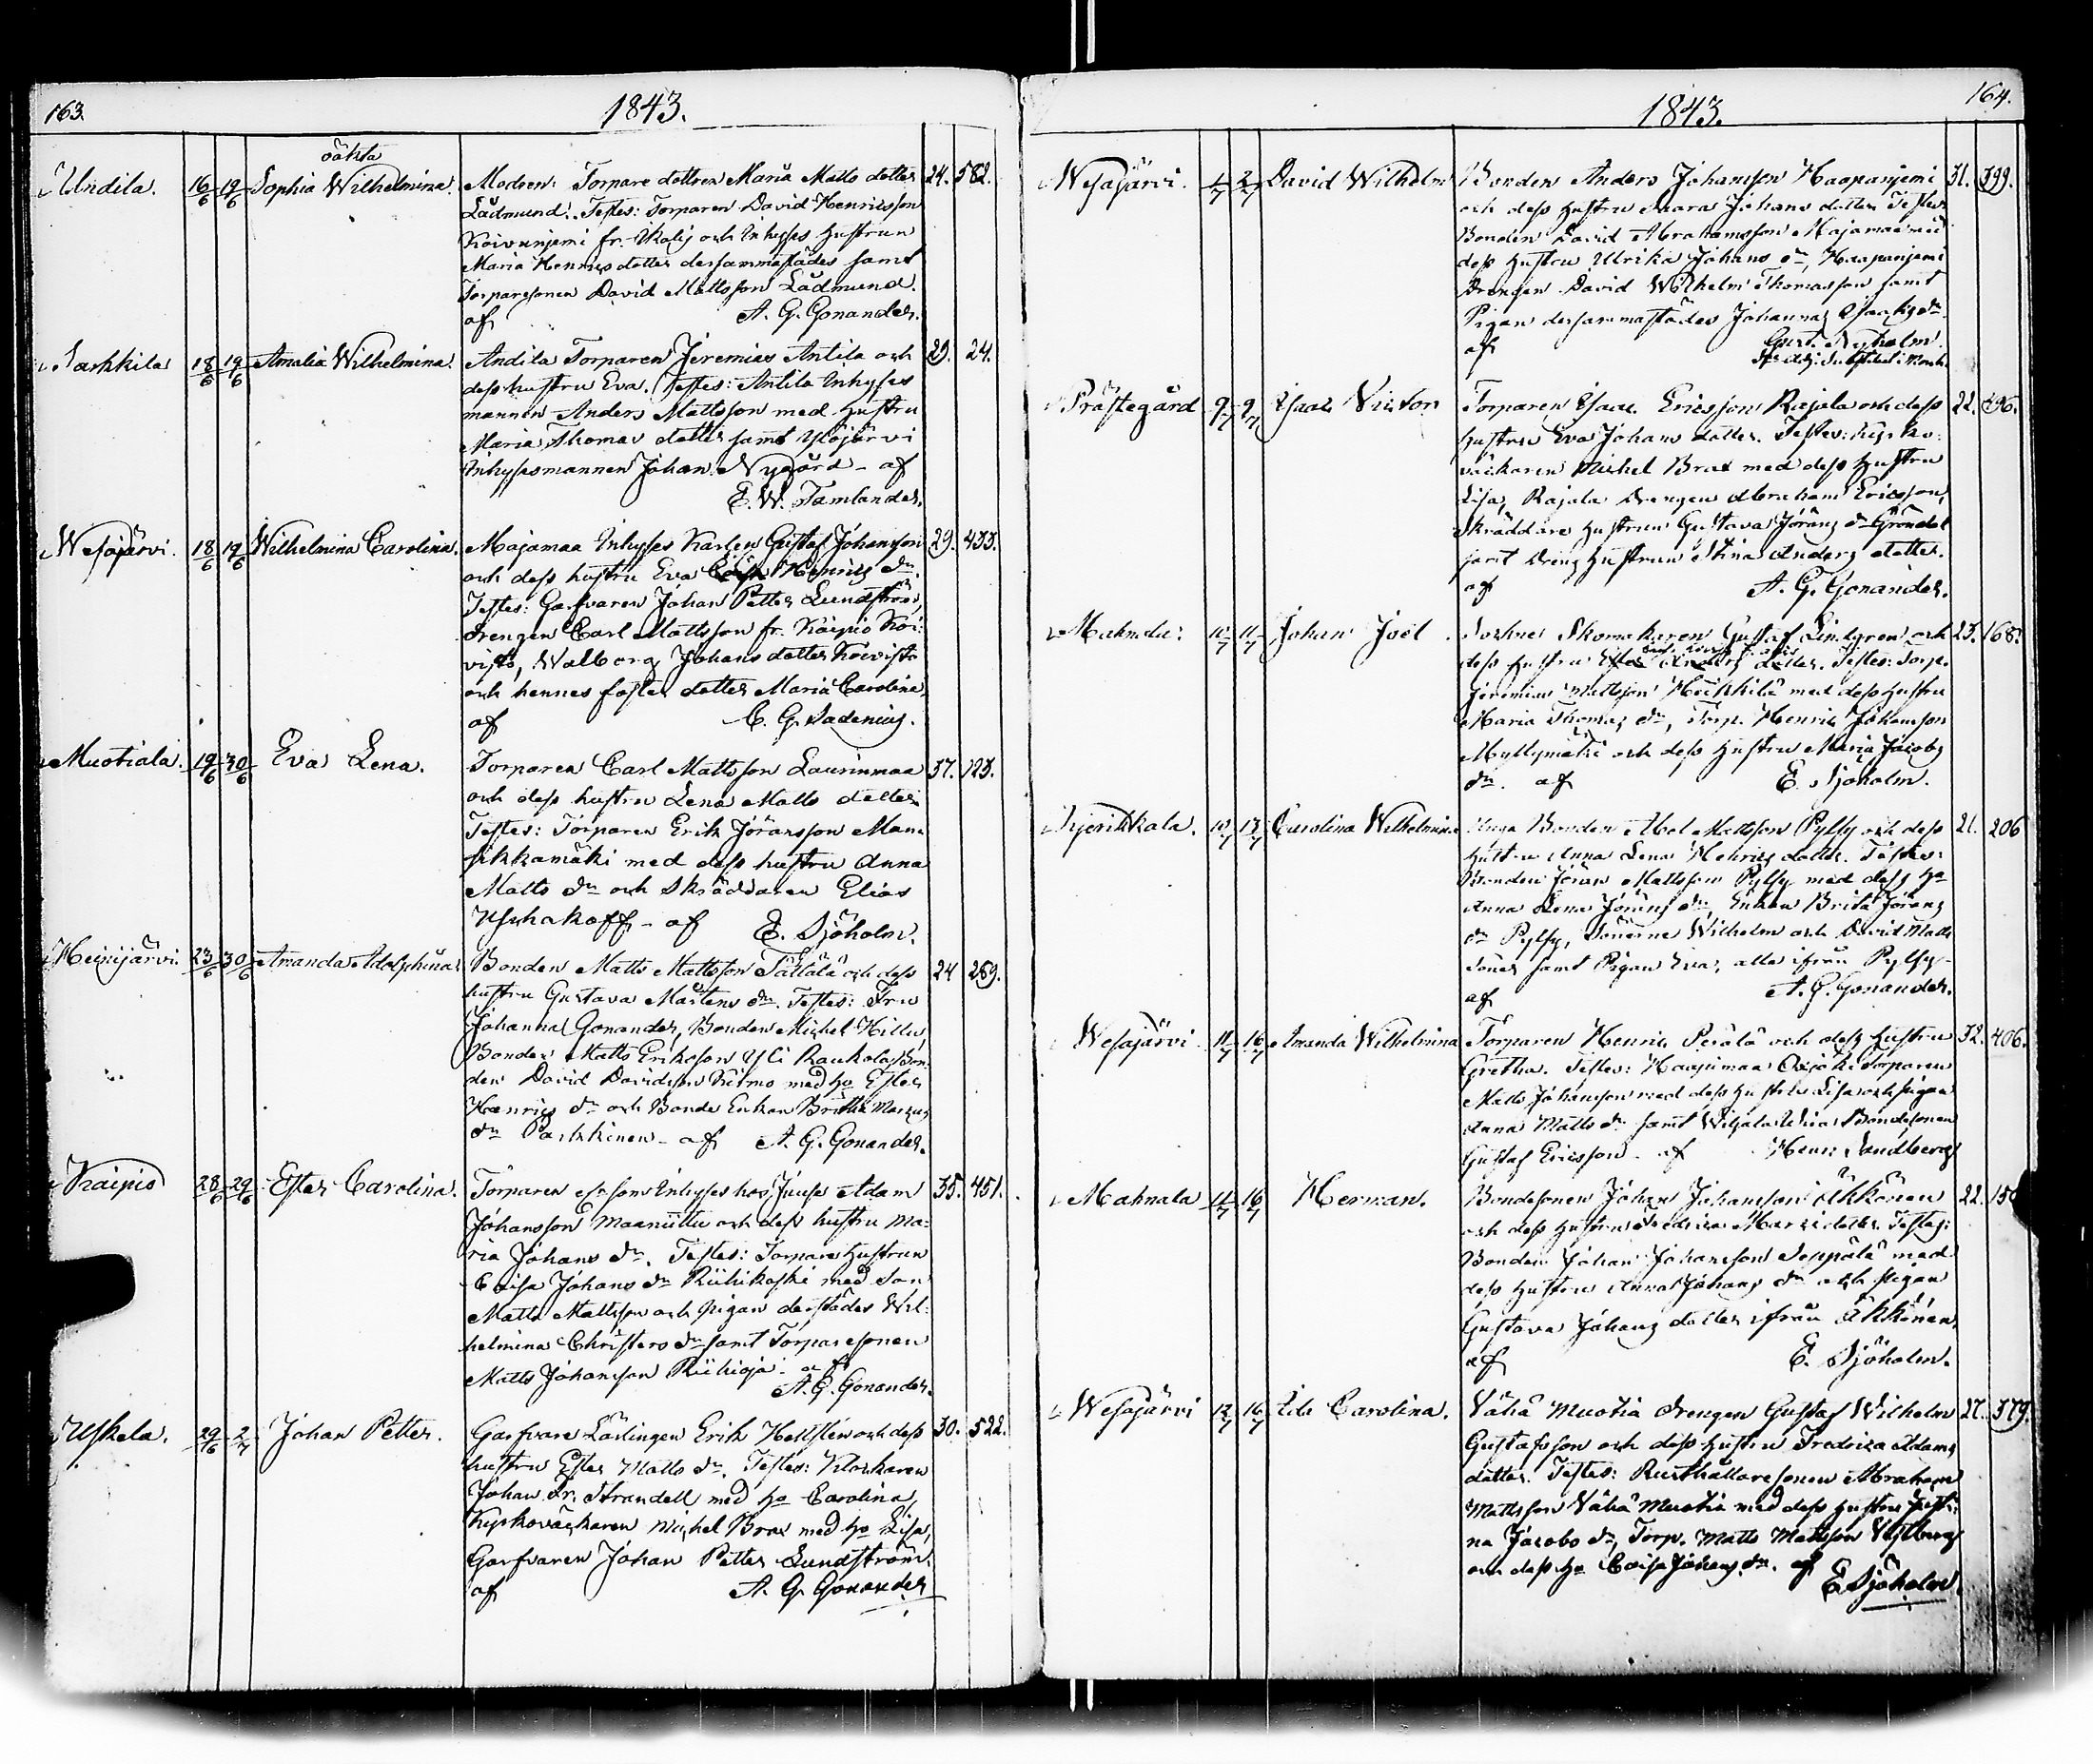 163.
1843.
oäkta
Undila. 16/6 19/6 Sophia Wilhelmina. Modren: Torpare dottren Maria Matts dotter 24. 582.
Lädmund. Testes: Torparen David Henricsson
Koivuniemi fr. Ikalis och Inhyses hustrun
Maria Henrics dotter dersammastädes samt
Torparesonen David Mattsson Lädmund.
af A. G. Gonander.
Sarkkila 18/6 19/6 Amalia Wilhelmina. Andila Torparen Jeremias Antila och 29. 24.
dess hustru Eva. Testes: Antila Inhyses
mannen Anders Mattsson med hustru
Maria Thomas dotter samt Ylöjärvi
Inhysesmannen Johan Nygård - af
E. W. Tamlander.
Wesajärvi. 18/6 19/6 Wilhelmina Carolina. Majamaa Inhyses Karlen Gustaf Johansson 29. 433.
och dess hustru Eva Henrics dr.
Testes: Garfvaren Johan Petter Lundström,
drengen Carl Mattsson fr. Kaipio Koi-
visto, Walborg Johans dotter Koivisto
och hennes foster dotter Maria Carolina,
af C. G. Sadenius.
Muotiala. 19/6 30/6 Eva Lena. Torparen Carl Mattsson Laurinmaa 37. 123.
och dess hustru Lena Matts dotter.
Testes: Torparen Erik Jöransson Man-
sikkamäki med dess hustru Anna
Matts dr och Skräddaren Elias
Uschakoff - af E. Sjöholm.
Heinijärvi. 23/6 30/6 Amanda Adolphina. Bonden Matts Mattsson Tättälä och dess 24 269.
hustru Gustava Mårtens dr. Testes: Fru
Johanna Gonander, Bonden Michel Hillu,
Bonden Matts Eriksson Yli Raukola, Bon-
den David Davidsson Kilmo med ho Ester
Henrics dr och Bonde Enkan Britha Marcus
dr Parkkinen - af A. G. Gonander.
Kaipio 28/6 29/6 Ester Carolina. Torpare son Inhyses hos Juuse Adam 35. 451.
Johansson Maaniittu och dess hustru Ma-
ria Johans dr. Testes: Torpare hustrun
Caisa Johans dr Riihikoski med son
Matts Mattsson och pigan derstädes Wil-
helmina Christers dr samt Torparesonen
Matts Johansson Riihioja. af
A. G. Gonander.
Uskela. 29/6 2/7 Johan Petter. Garfvare Lärlingen Erik Hellstén och dess 30. 522.
hustru Ester Matts dr. Testes: Klockaren
Johan Fr. Strandell med ho Carolina,
Kyrkoväcktaren Michel Brax med ho Lisa,
Garfvaren Johan Petter Lundström.
af A. G. Gonander
164.
1843.
Wesajärvi. 1/7 2/7 David Wilhelm Bonden Anders Johansson Haapaniemi 31. 399.
och dess hustru Saara Johans dotter. Testes:
Bonden David Abrahamsson Majamaa med
dess hustru Ulrika Johans dr, Haapaniemi
Drengen David Wilhelm Thomasson samt
Pigan dersammastädes Johanna Isaks dr.
af Gust. Nyholm.
Prästegård 9/7 9/7 Isaac Victor Torparen Isaac Ericsson Rajala och dess 22. 496.
hustru Eva Johans dotter. Testes: Kyrko-
väckaren Michel Brax med dess hustru
Lisa, Rajala drengen Abraham Ericsson,
Skräddare hustrun Gustava Jörans dr Gröndal
samt Dreng hustrun Stina Anders dotter.
af A. G. Gonander.
Mahnala: 10/7 11/7 Johan Joël. Sockne Skomakaren Gustaf Lindgren och 23. 168.
dess hustru Ester Anders dotter. Testes: Torp.
Jeremias Mattsson Heikkilä med dess hustru
Maria Thomas dr, Torp. Henric Johansson
Myllymäki och dess hustru Maria Jacobs
dr. af E. Sjöholm.
Kyröskkala. 10/7 13/7 Carolina Wilhelmina Unga Bonden Abel Mattsson Pylsy och dess 21. 206
hustru Anna Lena Henrics dotter. Testes:
Bonden Jöran Mattsson Pylsy med dess ho
Anna Lena Jörans dr, Enkan Brita Jörans
dr Pylsy, Sönerne Wilhelm och David Matts
söner samt Pigan Eva, alla ifrån Pylsy -
af A. G. Gonander.
Wesajärvi. 11/7 16/7 Amanda Wilhelmina Torparen Henric Perälä och dess hustru 32. 406.
Gretha. Testes: Haapimaa Torparen
Matts Johansson med dess hustru Lisa och pigan
Anna Matts dr samt Bondesonen
Gustaf Ericsson - af Henr. Sandberg
Mahnala 11/7 16/7 Herman. Bondesonen Johan Johansson Ähkönen 22. 15
och dess hustru Fredrica Marci dotter. Testes:
Bonden Johan Johansson Seppälä med
dess hustru Anna Johans dr och pigan
Gustava Johans dotter ifrån Ähkönen.
af E. Sjöholm.
Wesajärvi 12/7 16/7 Ida Carolina. Vähä Muotia drengen Gustaf Wilhelm 27. 379.
Gustafsson och dess hustru Fredrica Adams
dotter. Testes: Rusthållaresonen Abraham
Mattsson Vähä Muotia med dess hustru Justi-
na Jacobs dr, Torp. Matts Mattsson Vestberg
och dess ho Caisa Johans dr. af
E. Sjöholm.